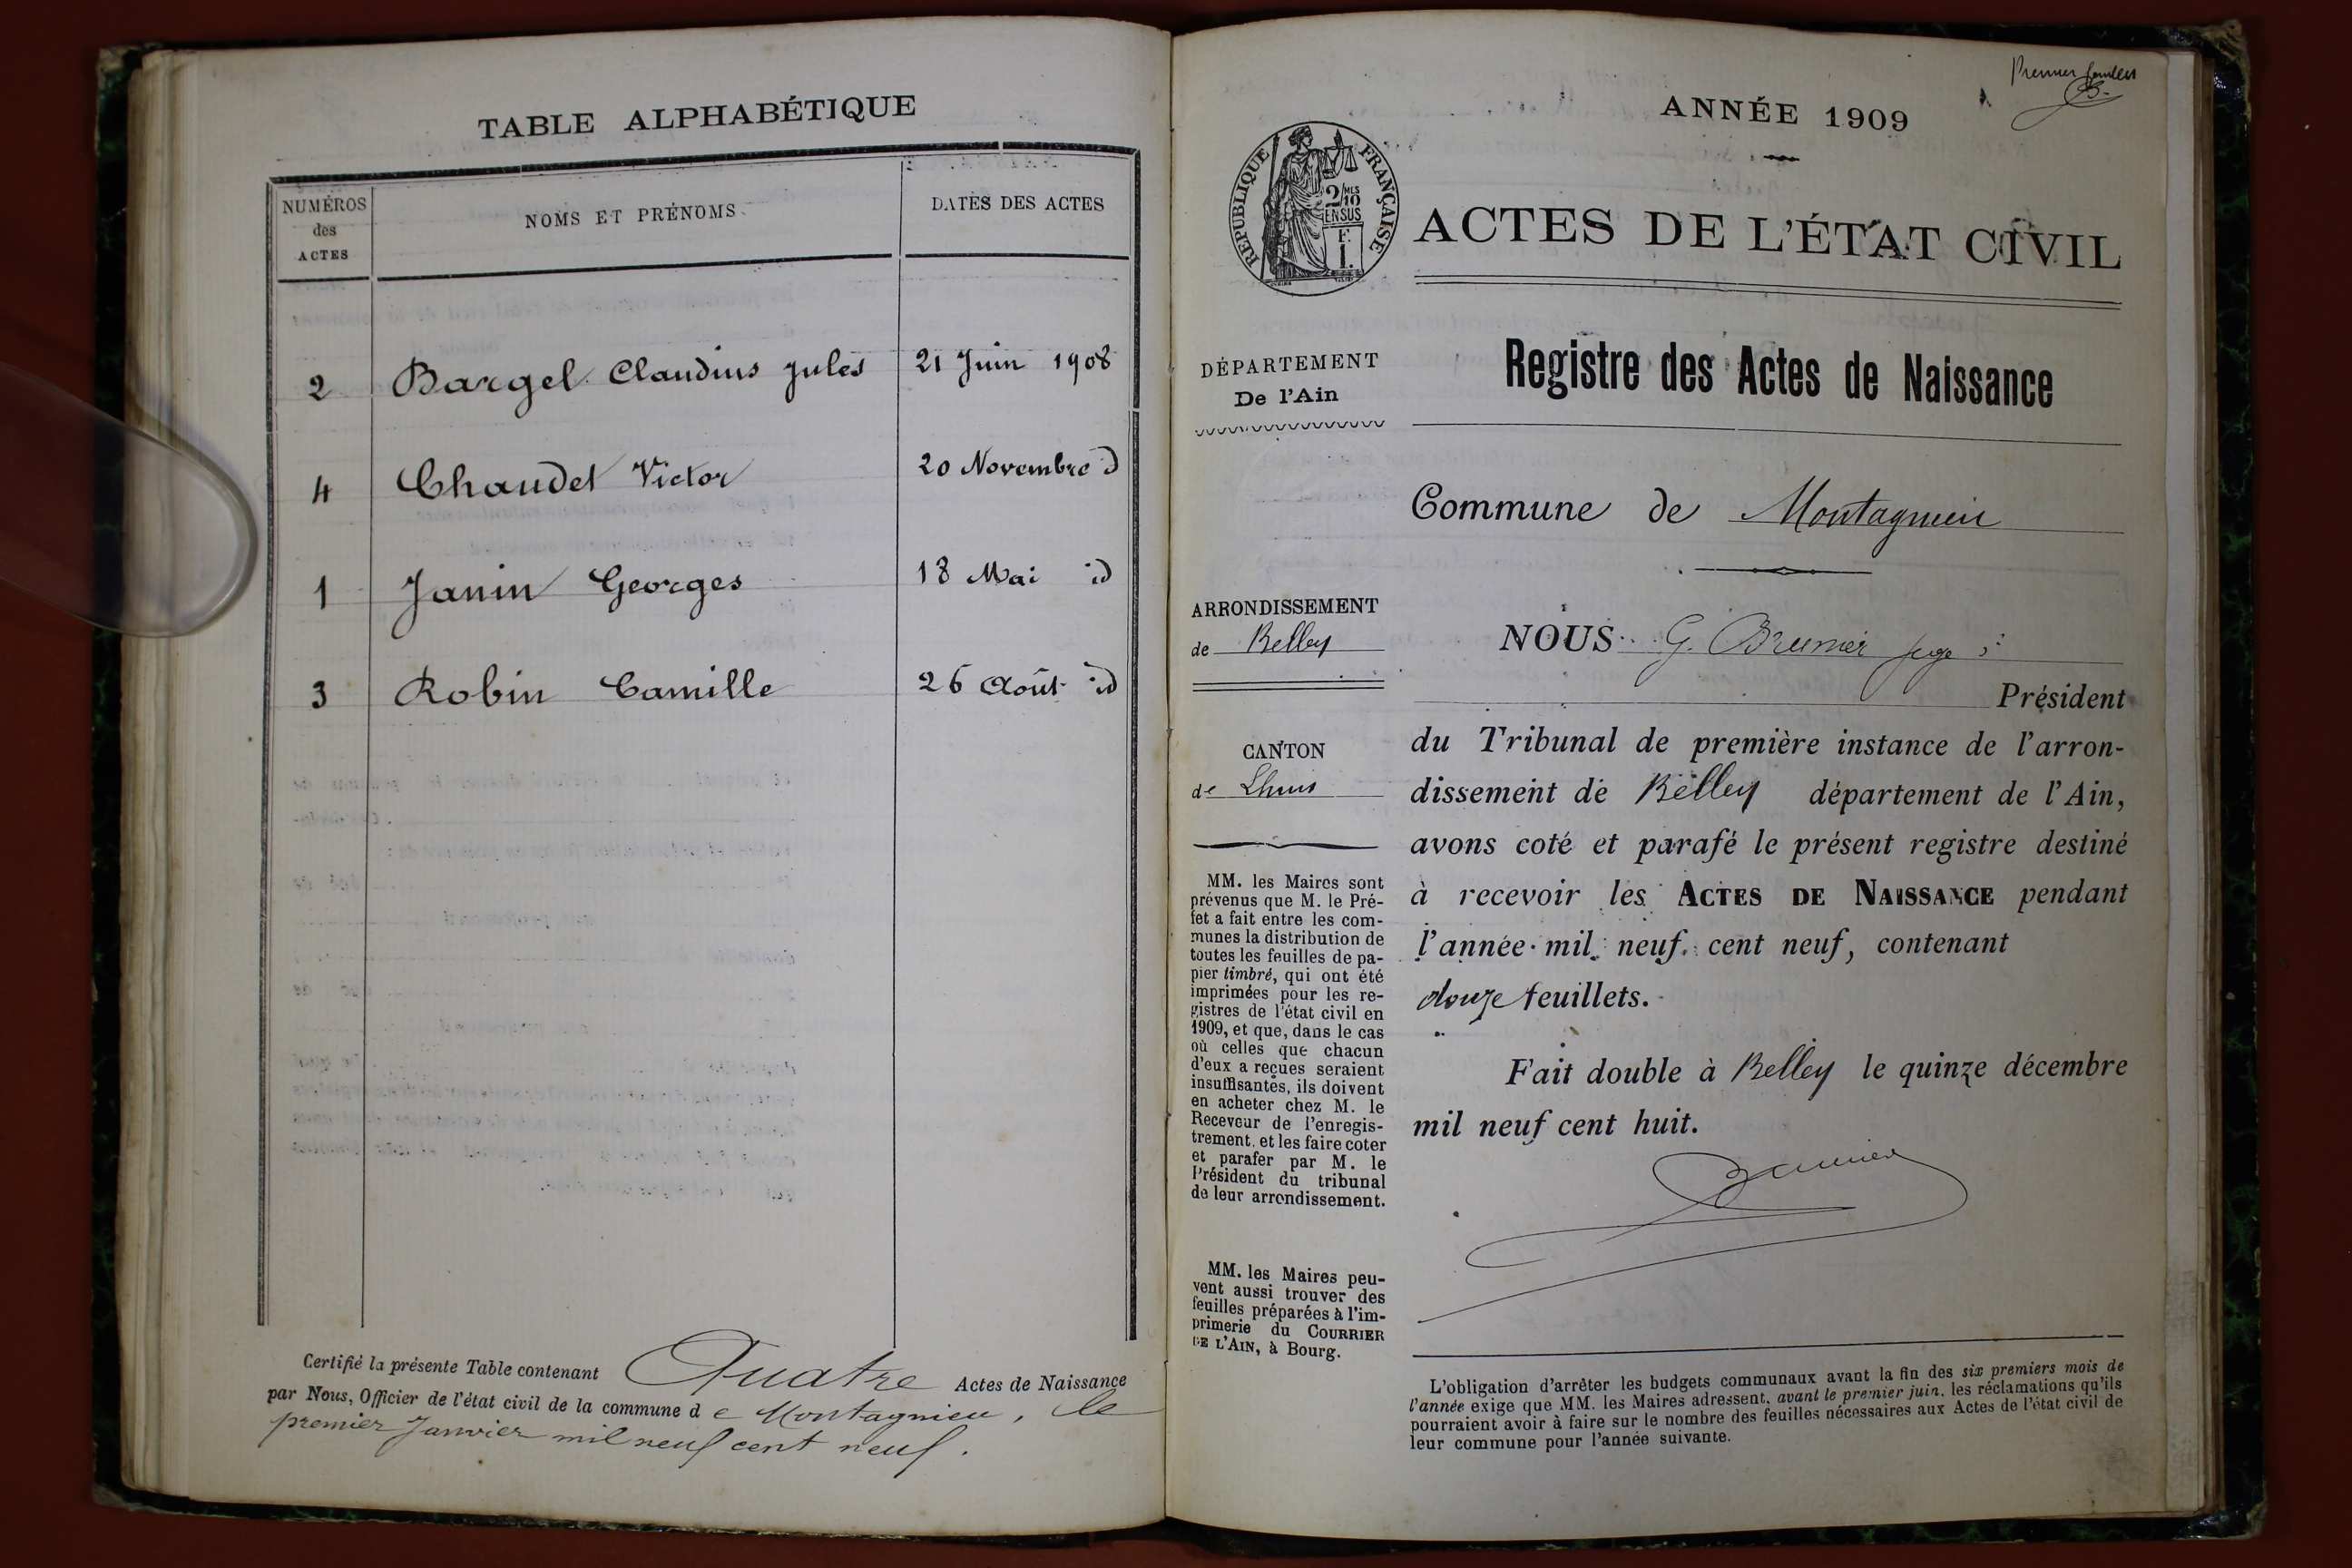 TABLE ALPHABÉTIQUE
NUMÉROS des ACTES
NOMS ET PRÉNOMS
DATES DES ACTES
2 Bargel Claudius Jules 21 Juin 1908
4 Chaudet Victor 20 Novembre id
1 Janin Georges 18 Mai id
3 Robin Camille 26 Août id
Certifié la présente Table contenant Quatre Actes de Naissance
par Nous, Officier de l'état civil de la commune de Montagnieu, le
premier Janvier mil neuf cent neuf.
Premier feuillet
ANNÉE 1909
RÉPUBLIQUE FRANÇAISE
2/10 EN SUS
F.
1.
ACTES DE L'ÉTAT CIVIL
DÉPARTEMENT
De l'Ain
Registre des Actes de Naissance
Commune de Montagnieu
ARRONDISSEMENT
de Belley
CANTON
de Lhuis
MM. les Maires sont
prévenus que M. le Pré-
fet a fait entre les com-
munes la distribution de
toutes les feuilles de pa-
pier timbré, qui ont été
imprimées pour les re-
gistres de l'état civil en
1909, et que, dans le cas
où celles que chacun
d'eux a reçues seraient
insuffisantes, ils doivent
en acheter chez M. le
Receveur de l'enregis-
trement, et les faire coter
et parafer par M. le
Président du tribunal
de leur arrondissement.
MM. les Maires peu-
vent aussi trouver des
feuilles préparées à l'im-
primerie du COURRIER
DE L'AIN, à Bourg.
NOUS G. Brunier juge
Président
du Tribunal de première instance de l'arron-
dissement de Belley département de l'Ain,
avons coté et parafé le présent registre destiné
à recevoir les ACTES DE NAISSANCE pendant
l'année mil neuf cent neuf, contenant
douze feuillets.
Fait double à Belley le quinze décembre
mil neuf cent huit.
Brunier
L'obligation d'arrêter les budgets communaux avant la fin des six premiers mois de
l'année exige que MM. les Maires adressent, avant le premier juin, les réclamations qu'ils
pourraient avoir à faire sur le nombre des feuilles nécessaires aux Actes de l'état civil de
leur commune pour l'année suivante.